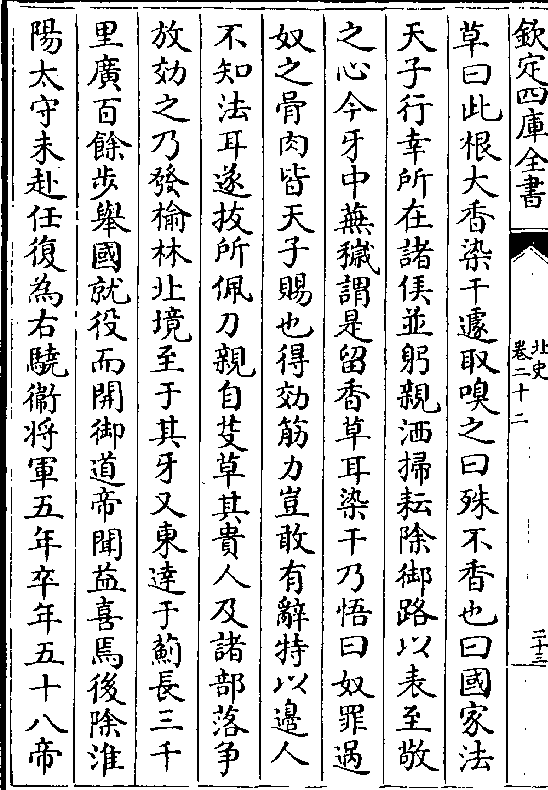 欽定四庫全書
北史
卷二十二
二十三
草曰此根大香染干遽取嗅之曰殊不香也曰國家法
天子行幸所在諸侯並躬親洒掃耘除御路以表至敬
之心今牙中蕪穢謂是留香草耳染干乃悟曰奴罪過
奴之骨肉皆天子賜也得効筋力豈敢有辭特以邊人
不知法耳遂拔所佩刀親自芟草其貴人及諸部落爭
放効之乃發榆林北境至于其牙又東達于薊長三千
里廣百餘步舉國就役而開御道帝聞益喜焉後除淮
陽太守未赴任復為右驍衞將軍五年卒年五十八帝